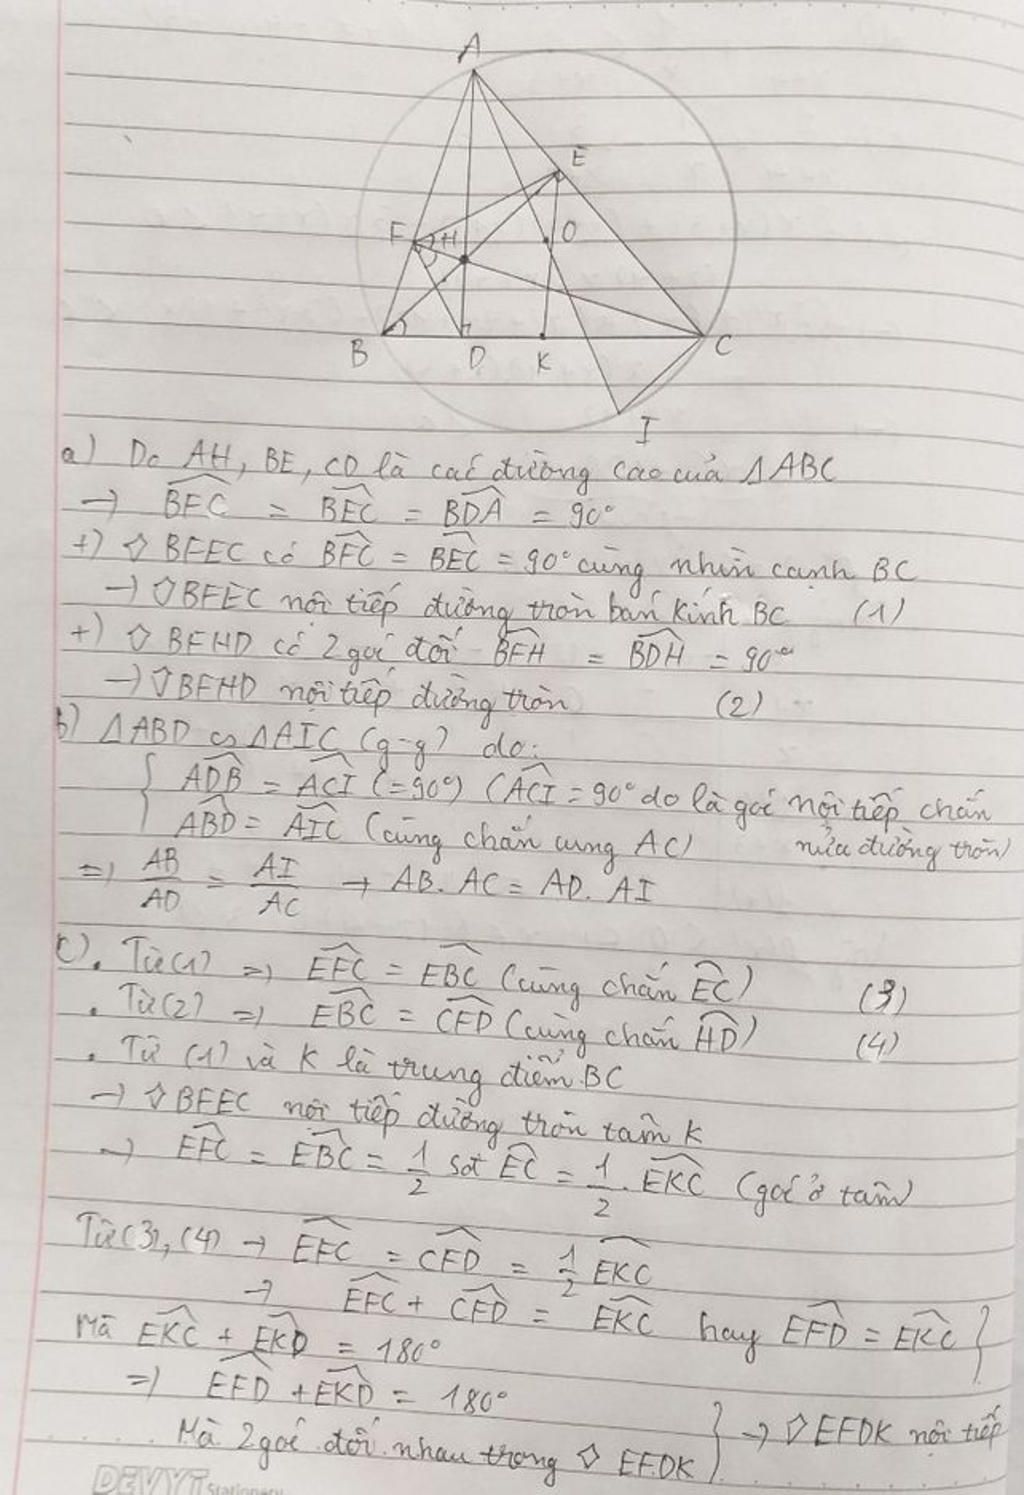 A
E
F
H
O
B
D
K
C
I
a) Do AH, BE, CD là các đường cao của ΔABC
→ BFC = BEC = BDA = 90°
+) ◊ BFEC có BFC = BEC = 90° cùng nhìn cạnh BC
→ ◊BFEC nội tiếp đường tròn bán kính BC (1)
+) ◊ BFHD có 2 góc đối BFH = BDH = 90°
→ ◊BFHD nội tiếp đường tròn (2)
b) ΔABD ∽ ΔAIC (g-g) do:
ADB = ACI (=90°) (ACI = 90° do là góc nội tiếp chắn
ABD = AIC (cùng chắn cung AC) nửa đường tròn)
=> AB/AD = AI/AC → AB. AC = AD. AI
c). Từ (1) => EFC = EBC (cùng chắn EC) (3)
. Từ (2) => EBC = CFD (cùng chắn HD) (4)
. Từ (1) và K là trung điểm BC
→ ◊BFEC nội tiếp đường tròn tâm K
→ EFC = EBC = 1/2 sđt EC = 1/2. EKC (góc ở tâm)
Từ (3), (4) → EFC = CFD = 1/2 EKC
→ EFC + CFD = EKC hay EFD = EKC }
Mà EKC + EKD = 180°
=> EFD + EKD = 180°
Mà 2 góc đối nhau trong ◊ EFDK } → ◊EFDK nội tiếp
DEVYT Stationery